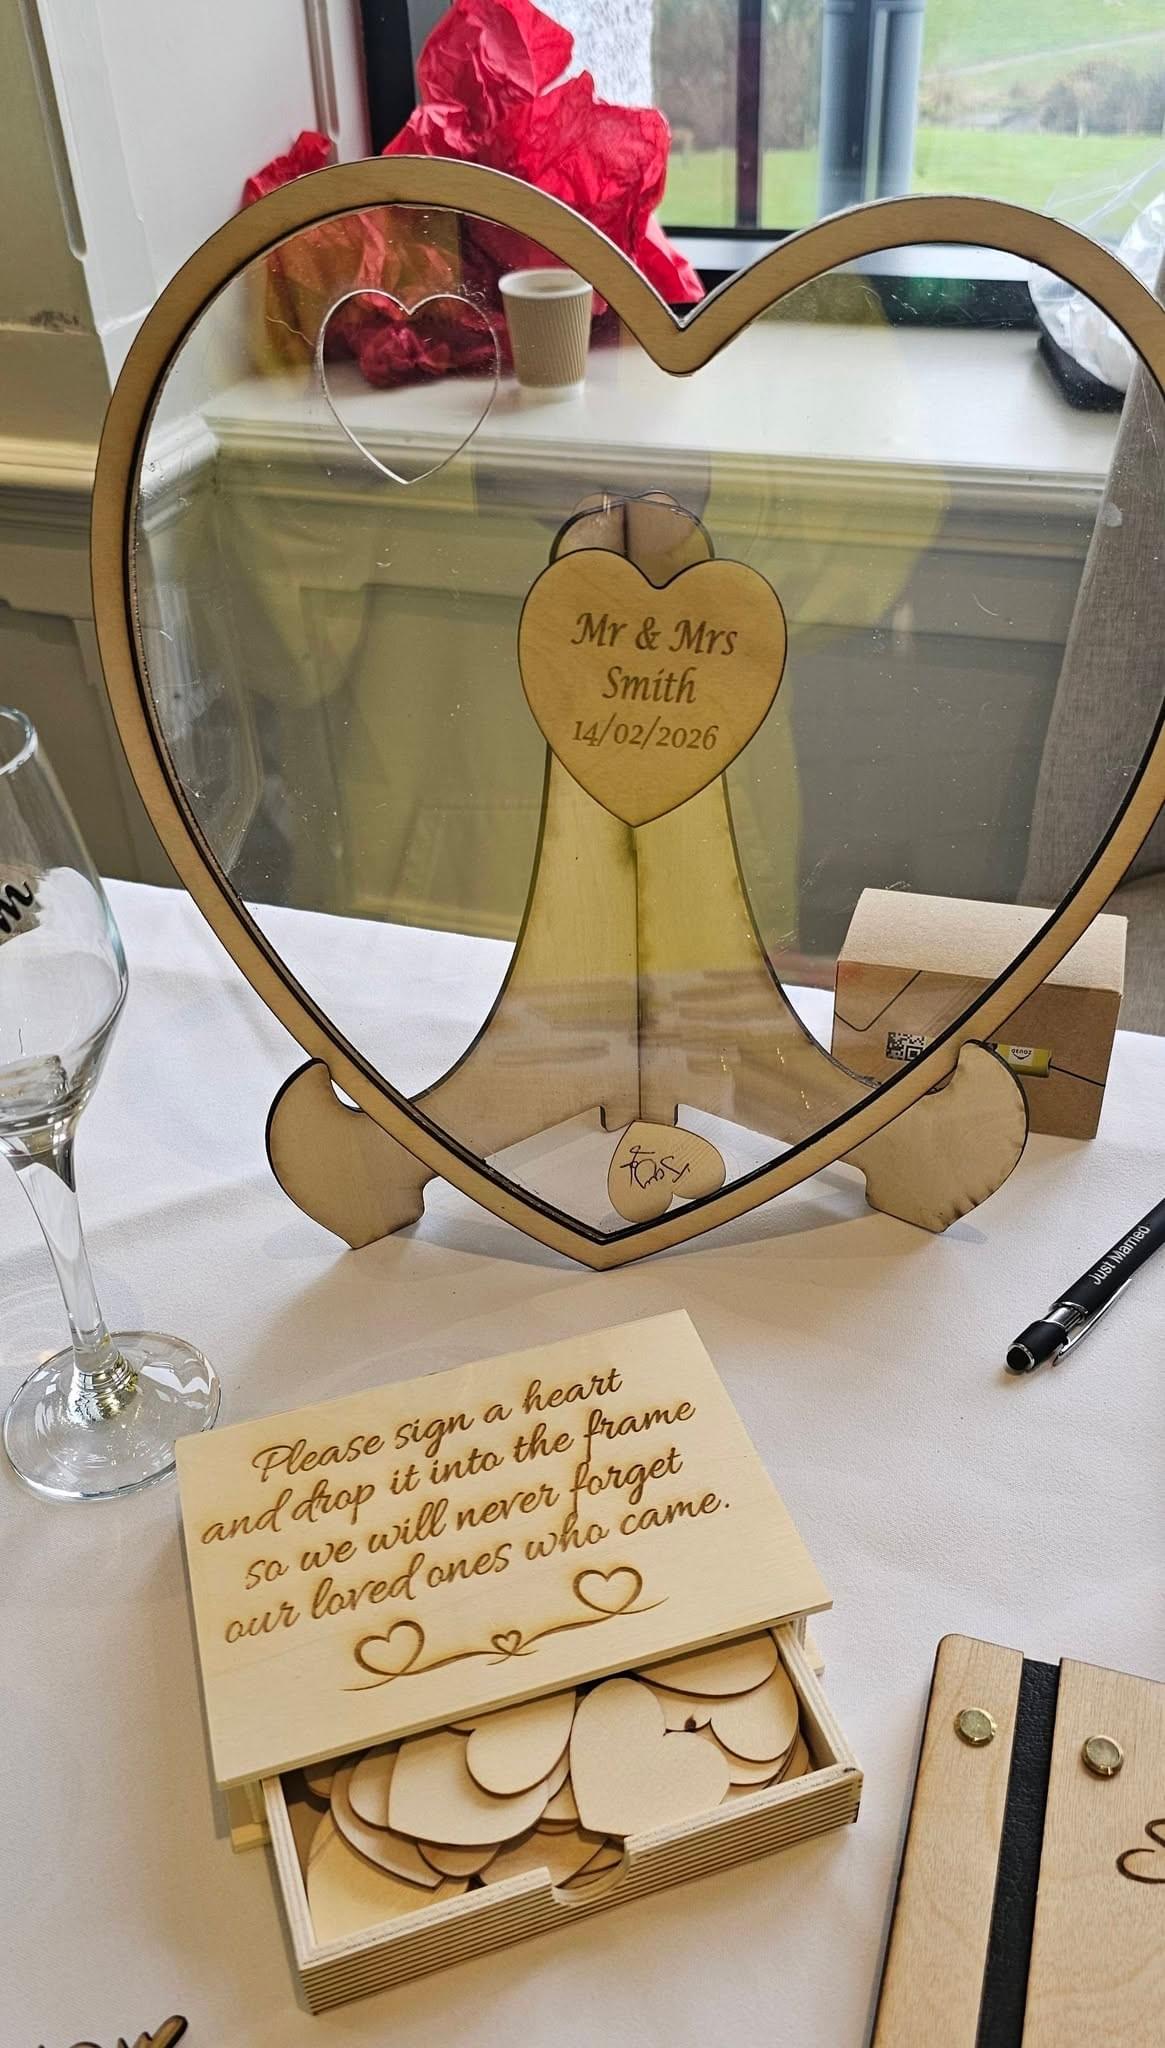 Mr & Mrs
Smith
14/02/2026
Just Married
Please sign a heart
and drop it into the frame
so we will never forget
our loved ones who came.